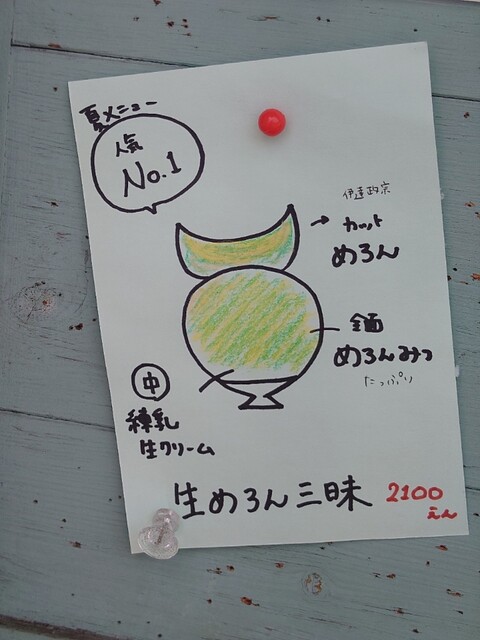 夏メニュー
人気
No.1
伊達政宗
カット
めろん
全面
めろんみつ
たっぷり
中
練乳
生クリーム
生めろん三昧 2100
えん